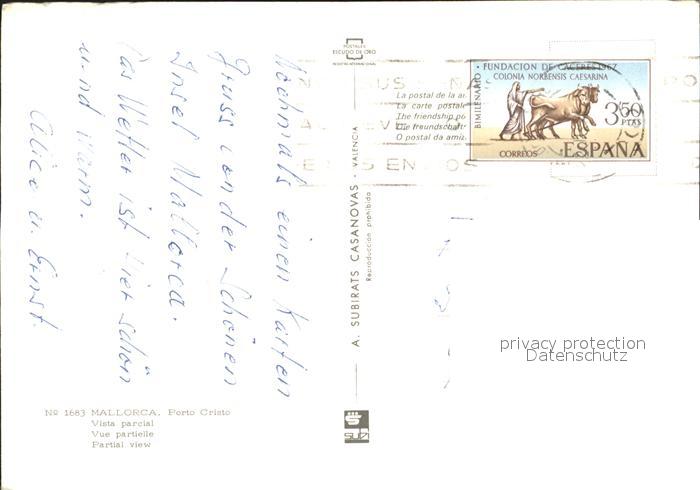 Nochmals einen Karten
Gruss von der Schönen
Insel Mallorca.
Das Wetter ist hier schön
und warm.
Alice u. Ernst.
Nº 1683 MALLORCA. Porto Cristo
Vista parcial
Vue partielle
Partial view
POSTALES
ESCUDO DE ORO
A. SUBIRATS CASANOVAS - VALENCIA
Reproducción prohibida
SUBI
La postal de la
La carte postale
The friendship
The freundschaft
O postal da
BIMILENARIO • FUNDACION DE CACERES 1967
COLONIA NORBENSIS CAESARINA
3'50
PTAS
CORREOS ESPAÑA
privacy protection
Datenschutz